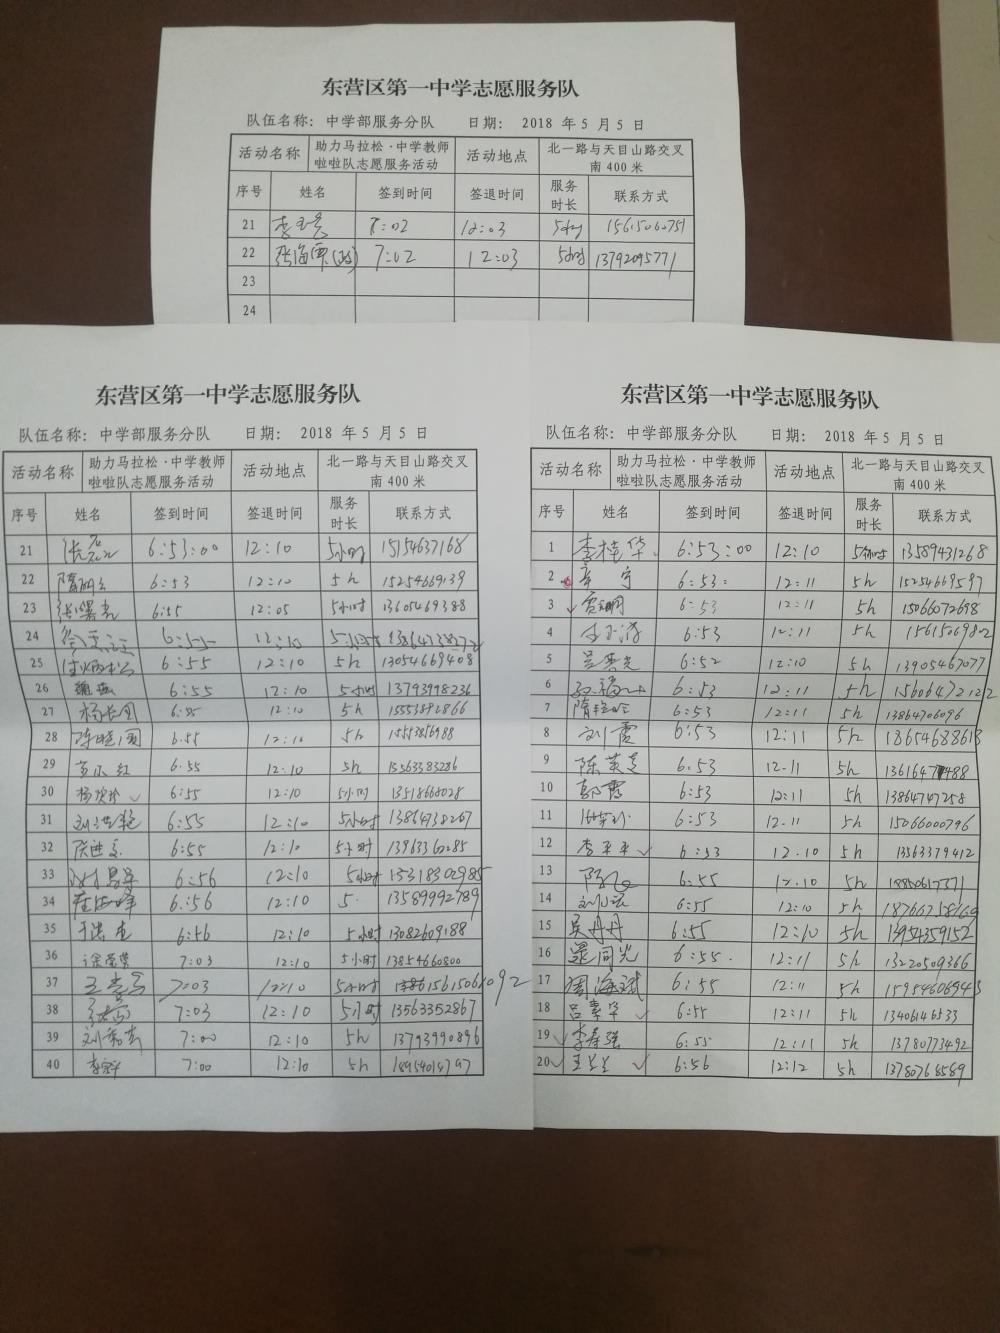 东营区第一中学志愿服务队
队伍名称：中学部服务分队 日期： 2018 年 5 月 5 日
活动名称 助力马拉松·中学教师啦啦队志愿服务活动 活动地点 北一路与天目山路交叉南 400 米
序号 姓名 签到时间 签退时间 服务时长 联系方式
21 7:02 12:03 5小时 15615060751
22 7:02 12:03 5小时 13792095771
23
24
东营区第一中学志愿服务队
队伍名称：中学部服务分队 日期： 2018 年 5 月 5 日
活动名称 助力马拉松·中学教师啦啦队志愿服务活动 活动地点 北一路与天目山路交叉南 400 米
序号 姓名 签到时间 签退时间 服务时长 联系方式
21 6:53:00 12:10 5小时 15154637168
22 6:53 12:10 5h 15254669139
23 张曙光 6:55 12:05 5小时 13605469388
24 6:55 12:10 5小时
25 6:55 12:10 5h 13054669408
26 魏燕 6:55 12:10 5小时 13793998236
27 杨长国 6:55 12:10 5h 15553892866
28 陈晓国 6:55 12:10 5h
29 苗小红 6:55 12:10 5h 13563383286
30 6:55 12:10 5小时 13518668028
31 刘洪艳 6:55 12:10 5小时 13864738267
32 6:55 12:10 5小时 13963360285
33 6:56 12:10 5小时 15318302985
34 6:56 12:10 5· 13589992789
35 于洪杰 6:56 12:10 5小时 13082609188
36 徐莹莹 7:03 12:10 5小时 13854660800
37 7:03 12:10 5小时 15615061092
38 7:03 12:10 5小时 13563352867
39 7:00 12:10 5h 13793990896
40 7:00 12:10 5h
东营区第一中学志愿服务队
队伍名称：中学部服务分队 日期： 2018 年 5 月 5 日
活动名称 助力马拉松·中学教师啦啦队志愿服务活动 活动地点 北一路与天目山路交叉南 400 米
序号 姓名 签到时间 签退时间 服务时长 联系方式
1 李桂华 6:53:00 12:10 5小时 13589431268
2 6:53: 12:11 5h 15254669597
3 6:53 12:11 5h 15066072698
4 6:53 12:11 5h 1561506982
5 6:52 12:10 5h 13905467077
6 6:53 12:11 5h 15606472122
7 6:53 12:11 5h 13864706096
8 刘霞 6:53 12:11 5h 18654688613
9 陈英芝 6:53 12.11 5h
10 郭霞 6:53 12:11 5h 13864747258
11 6:53 12.11 5h 15066000796
12 李平平 6:53 12.10 5h 13563379412
13 6:55 12.10 5h
14 6:55 12:10 5h 18766758169
15 吴丹丹 6:55 12:10 5h 13954359152
16 6:55. 12:11 5h 13220509366
17 周海斌 6:55 12:11 5h 15954606943
18 吕素华 6:55 12:11 5h 13406146533
19 李春强 6:55 12:11 5h 13780773492
20 王兰兰 6:56 12:12 5h 13780768589